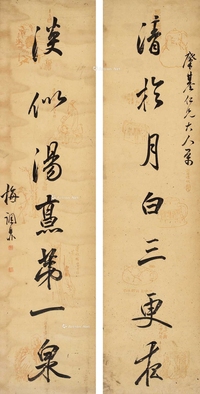 肇基仁兄大人屬
清於月白三更夜
淡似湯烹第一泉
梅調鼎